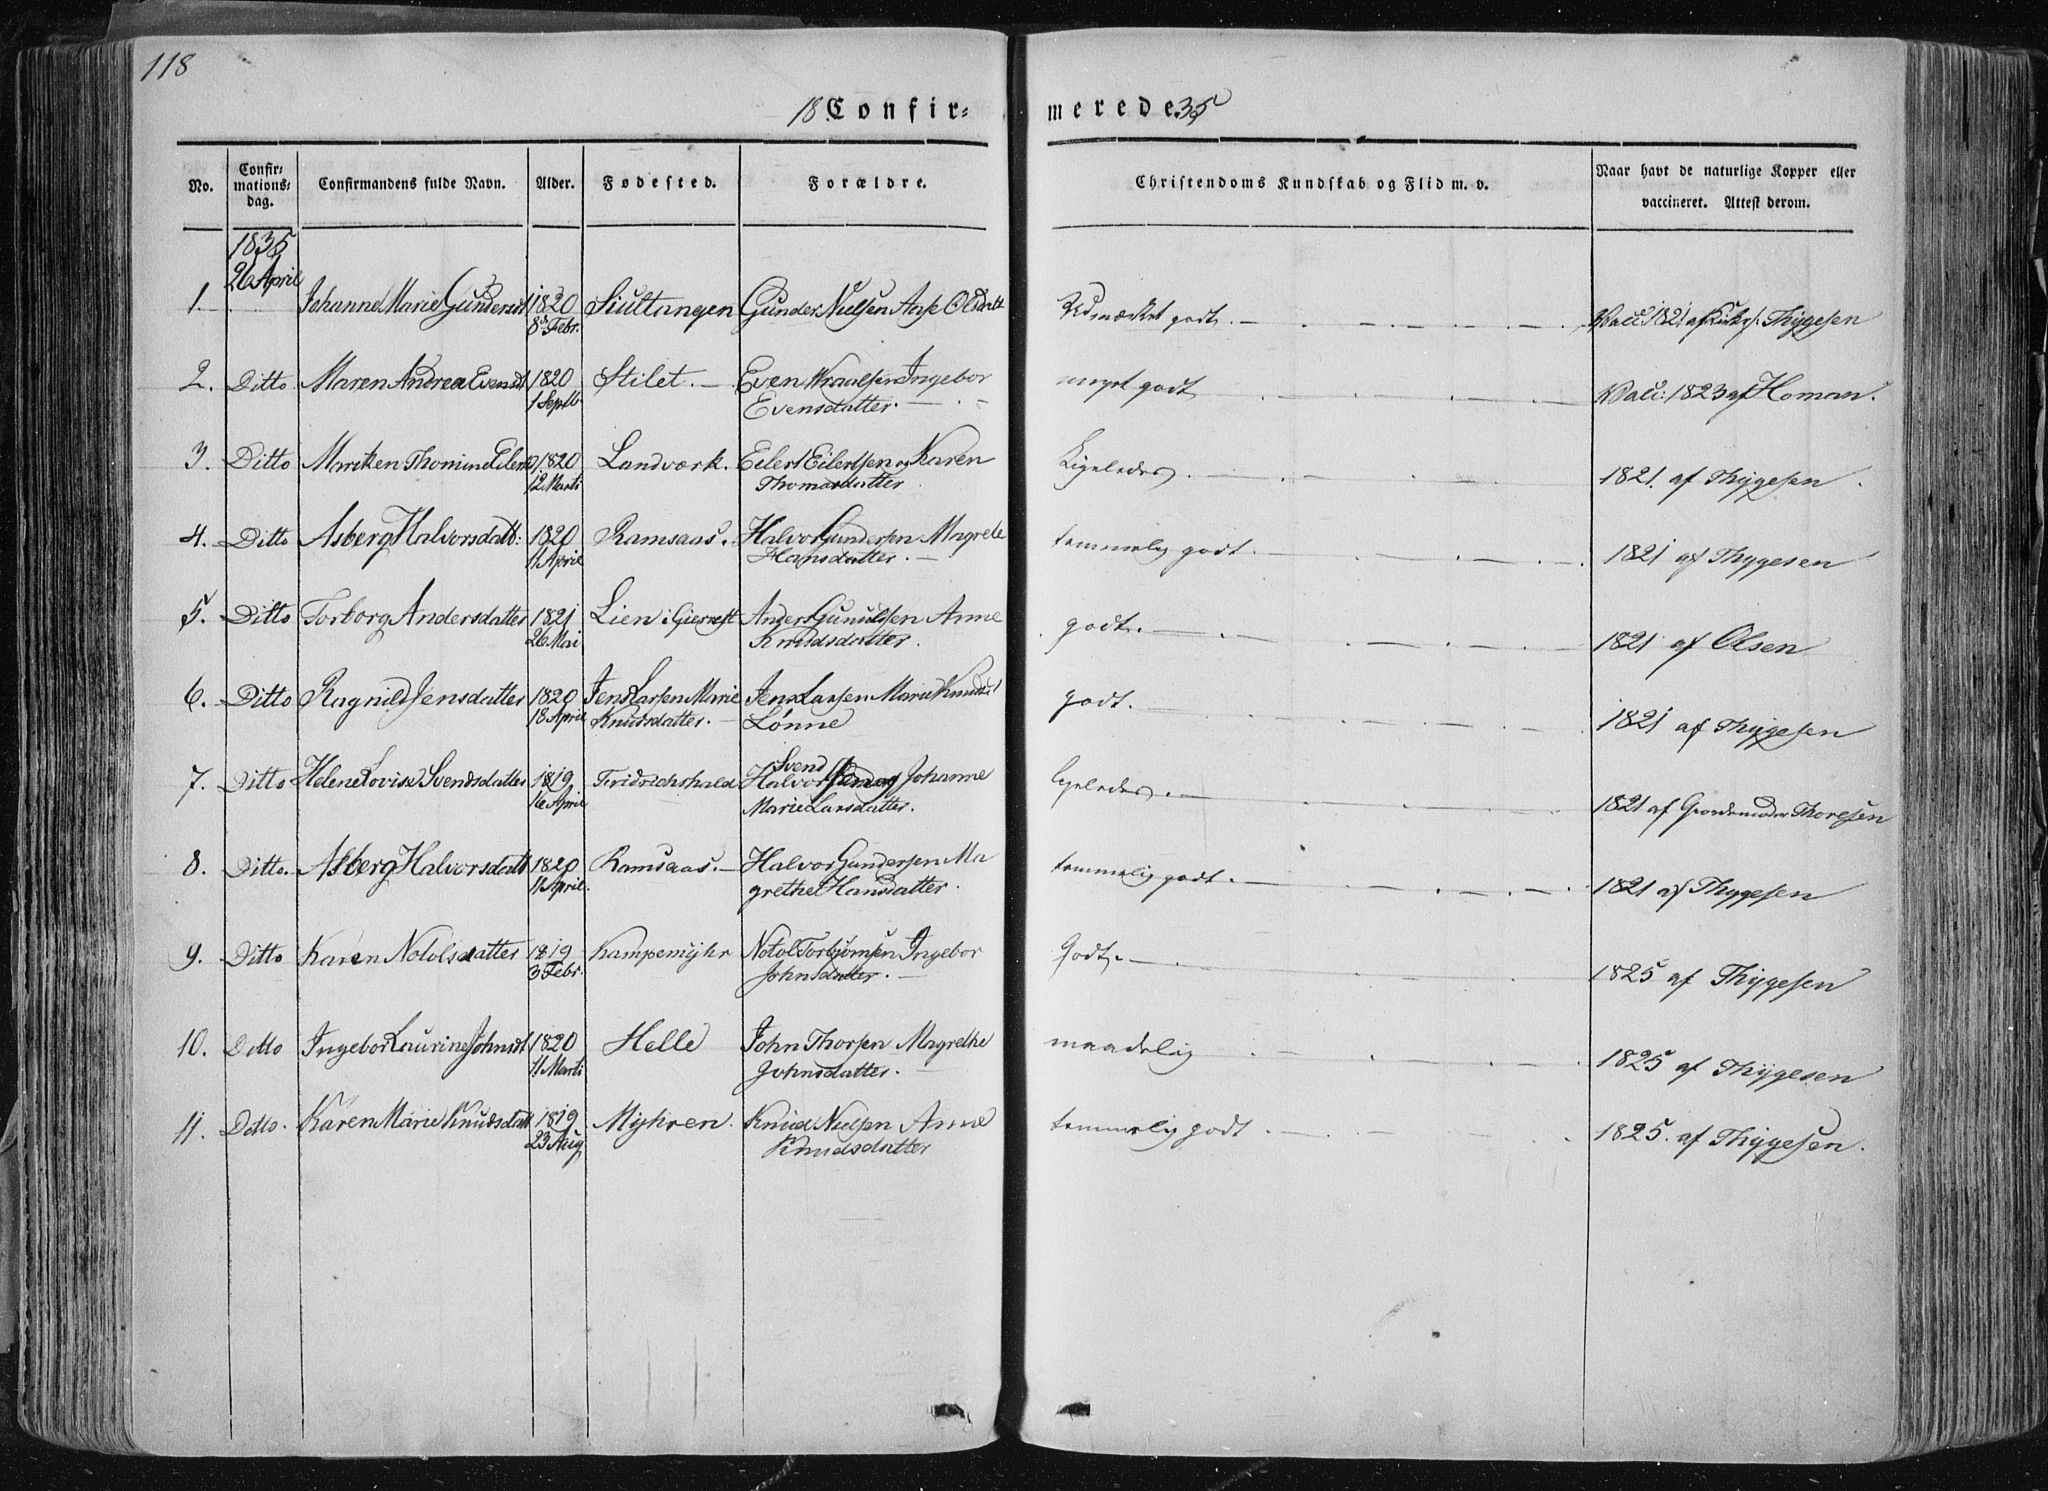 118
18 Confir=
merede 35
No.
Confir-
mations-
dag.
Confirmandens fulde Navn.
Alder.
Fødested.
Forældre.
Christendoms Kundskab og Flid m. v.
Naar havt de naturlige Kopper eller
vaccineret. Attest derom.
1835
26 April
1. Johanne Marie Gundersd 1820 Siultangen Gunder Nielsen Aase Olsdatt Udmærket godt. Vacc 1821 af Thygesen
8de Febr.
2. Ditto Maren Andrea Evensdt 1820 Stilet. Even Ingebor meget godt Vacc: 1823 af Homan.
1 Septb. Evensdatter.
3. Ditto Mariken Thomine Eilert 1820 Landværk. Eilert Eilertsen og Karen Ligeledes. 1821 af Thygesen.
12 Marti Thomasdatter
4. Ditto Asberg Halvorsdatt: 1820 Ramsaas. Halvor Gundersen Magrete temmelig godt. 1821 af Thygesen
11 April Hansdatter.
5. Ditto Torborg Andersdatter 1821 Lien i Gierrest Anders Gunulfsen Anne godt. 1821 af Olsen
26 Mai Knudsdatter.
6. Ditto Ragnild Jensdatter 1820 Jens Larsen Marie Jens Larsen Marie Knudsd godt. 1821 af Thygesen
18 April Knudsdatter. Lønne
Svend
7. Ditto Helene Lovise Svendsdatter 1819 Fridrichshald Halvorsen og Johanne ligeledes. 1821 af Gjordemoder Thoresen
16 April Marie Larsdatter.
8. Ditto. Asberg Halvorsdatt 1820 Ramsaas. Halvor Gundersen Ma temmelig godt. 1821 af Thygesen
11 April. grethe Hansdatter.
9. Ditto Karen Notolsdatter 1819 Kampemyhr Notol Torbjornsen Ingebor Godt. 1825 af Thygesen
3 Febr. Johnsdatter.
10. Ditto Ingebor Laurine Johnsdt 1820 Helle John Thorsen Magrethe maadelig 1825 af Thygesen
11 Marti Johnsdatter.
11. Ditto. Karen Marie Knudsdatt 1819 Myhren. Knud Nielsen Anne temmelig godt 1825. af Thygesen.
23 Aug Knudsdatter